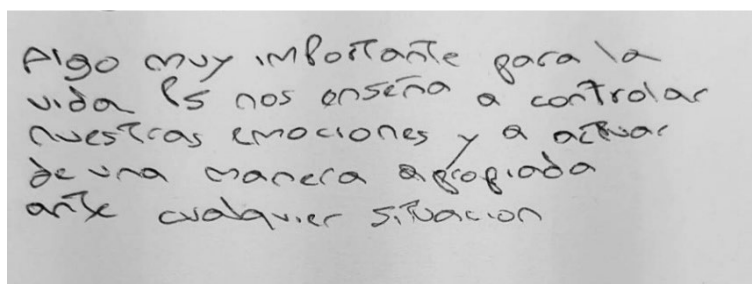 Algo muy importante para la
vida es nos enseña a controlar
nuestras emociones y a actuar
de una manera apropiada
ante cualquier situacion